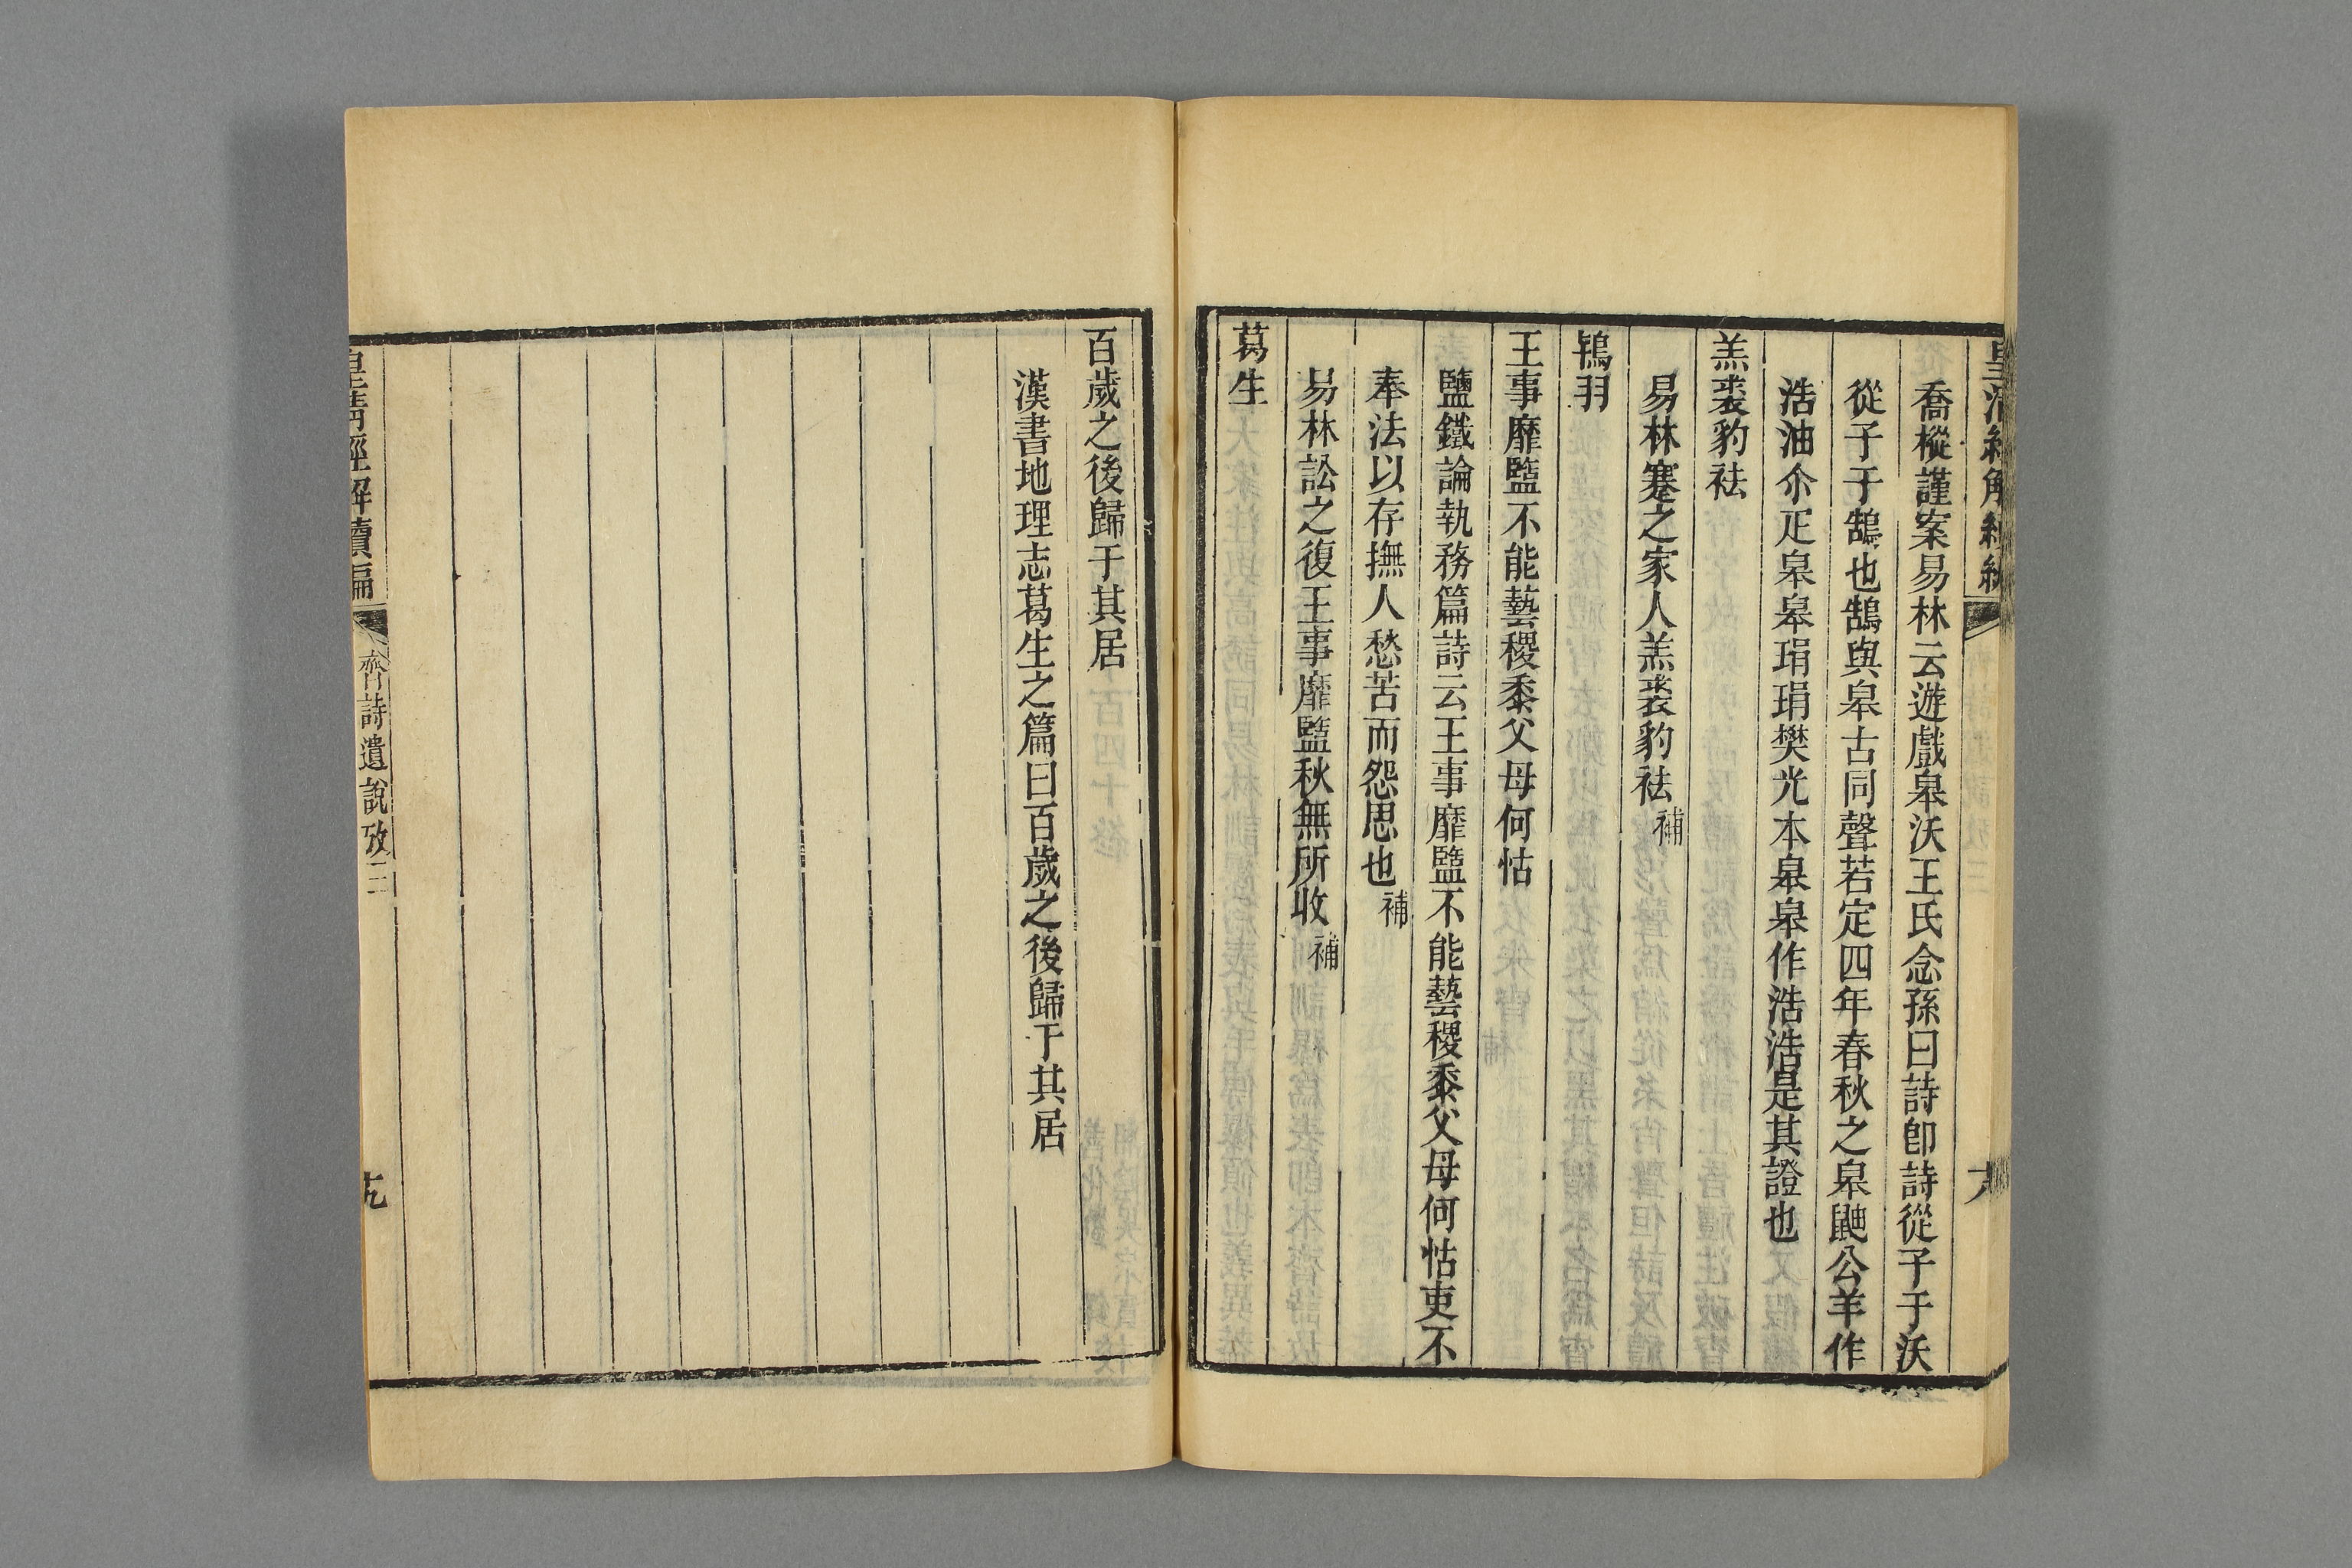 喬樅謹案易林云遊戲皋沃王氏念孫曰詩卽詩從子于沃
從子于鵠也鵠與皋古同聲若定四年春秋之皋鼬公羊作
浩油尒疋皋皋琄琄樊光本皋皋作浩浩是其證也
羔裘豹袪
易林蹇之家人羔裘豹袪補
鴇羽
王事靡盬不能藝稷黍父母何怙
鹽鐵論執務篇詩云王事靡盬不能藝稷黍父母何怙吏不
奉法以存撫人愁苦而怨思也補
易林訟之復王事靡盬秋無所收補
葛生
百歲之後歸于其居
漢書地理志葛生之篇曰百歲之後歸于其居
皇清經解續編
齊詩遺說攷三